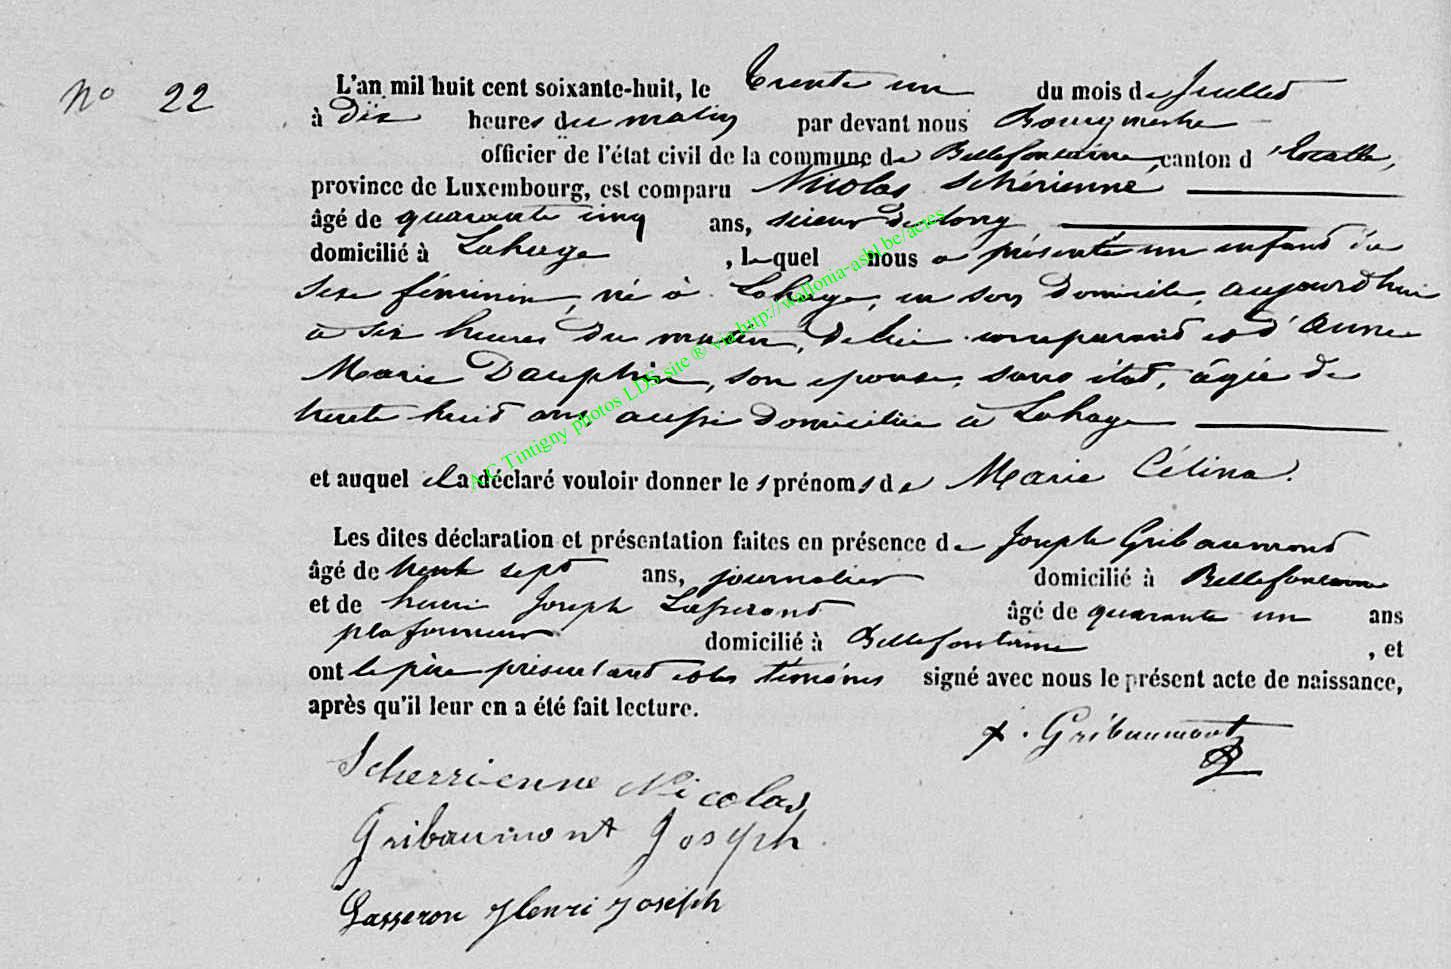 N° 22
L'an mil huit cent soixante-huit, le trente un du mois de Juillet
à Dix heures du matin par devant nous Bourgmestre
officier de l'état civil de la commune de Bellefontaine, canton d'Etalle,
province de Luxembourg, est comparu Nicolas Schérienne,
âgé de quarante cinq ans, scieur de long
domicilié à Lahage, lequel nous a présenté un enfant du
sexe féminin, né à Lahage, en son Domicile, aujourd'hui
à six heures du matin, de lui comparant et d'Anne
Marie Dauphin, son épouse, sans état, âgée de
trente huit ans, aussi domiciliée à Lahage
et auquel il a déclaré vouloir donner les prénoms de Marie Célina.
Les dites déclaration et présentation faites en présence de Joseph Gribaumont
âgé de trente sept ans, journalier domicilié à Bellefontaine
et de henri Joseph âgé de quarante un ans
plafonneur domicilié à Bellefontaine, et
ont le père présentant et les témoins signé avec nous le présent acte de naissance,
après qu'il leur en a été fait lecture.
Gribaumont
Scherrienne Nicolas
Gribaumont Joseph
Lasseron Henri Joseph
AC Tintigny photos LDS site ® via http://wallonia-asbl.be/actes